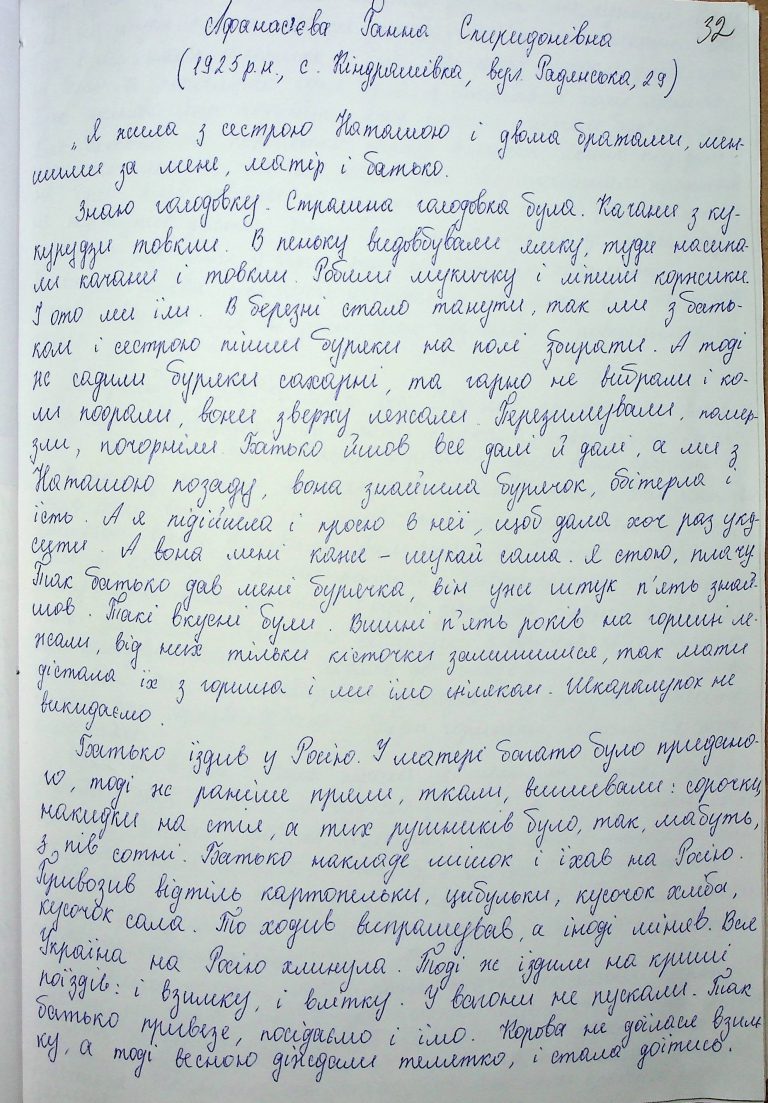 32
Афанасьєва Ганна Спиридонівна
(1925 р.н., с. Кіндрашівка, вул. Радянська, 29)
„Я жила з сестрою Наташою і двома братами, мен-
шими за мене, матір і батько.
Знаю голодовку. Страшна голодовка була. Качани з ку-
курудзи товкли. В пеньку видовбували ямку, туди насипа-
ли качани і товкли. Робили мукичку і ліпили коржики.
І ото ми їли. В березні стало танути, так ми з бать-
ком і сестрою пішли буряки на полі збирати. А тоді
ж садили буряки сахарні, та гарно не вибрали і ко-
ли поорали, вони зверху лежали. Перезимували, помер-
зли, почорніли. Батько йшов все далі й далі, а ми з
Наташою позаду, вона знайшла бурячок, обітерла і
їсть. А я підійшла і прошу в неї, щоб дала хоч раз уку-
сити. А вона мені каже – шукай сама. Я стою, плачу.
Так батько дав мені бурячка, він уже штук п'ять знай-
шов. Такі вкусні були. Вишні п'ять років на горищі ле-
жали, від них тільки кісточки залишилися, так мати
дістала їх з горища і ми їмо гілякам. Шкаралупок не
викидаємо.
Батько їздив у Росію. У матері багато було придано-
го, тоді ж раніше пряли, ткали, вишивали: сорочки,
накидки на стіл, а тих рушників було, так, мабуть,
з пів сотні. Батько накладе мішок і їхав на Росію.
Привозив відтіль картопельки, цибульки, кусочок хліба,
кусочок сала. То ходив випрашував, а іноді міняв. Вся
Україна на Росію хлинула. Тоді ж їздили на криші
поїздів: і взимку, і влітку. У вагони не пускали. Так
батько привезе, посідаємо і їмо. Корова не доїлася взим-
ку, а тоді весною діждали телятко, і стала доїтись.